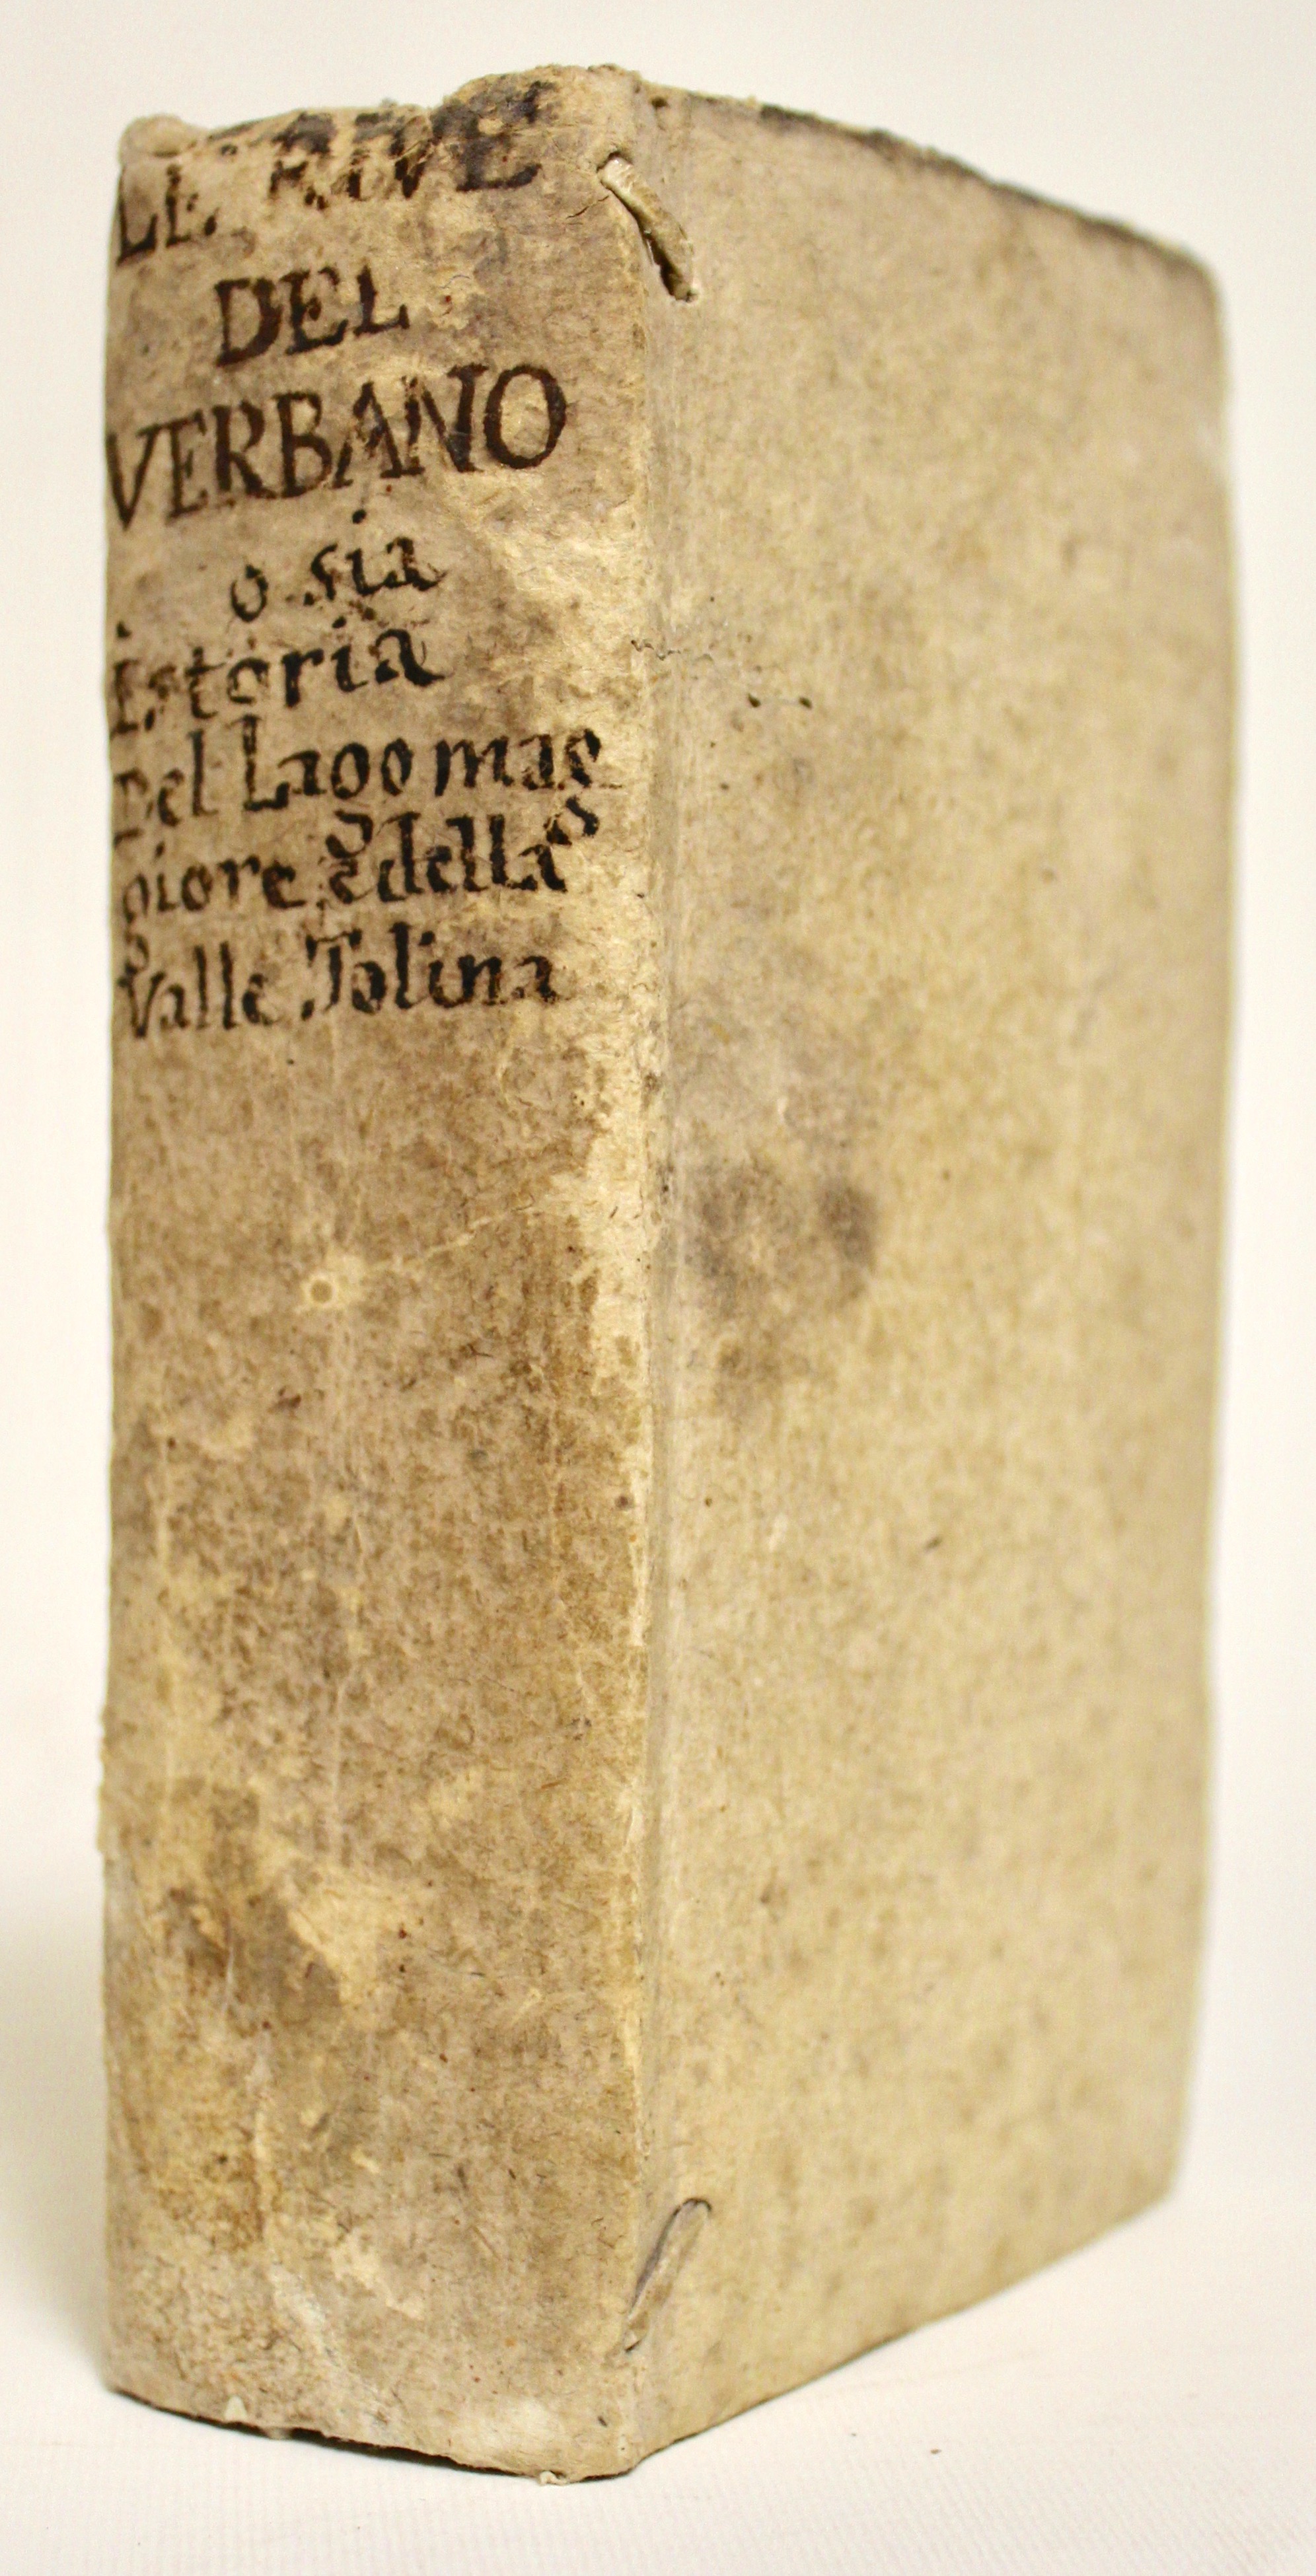 LE RIVE
DEL
VERBANO
o sia
Istoria
Del Lago mag
giore e della
Valle Tolina